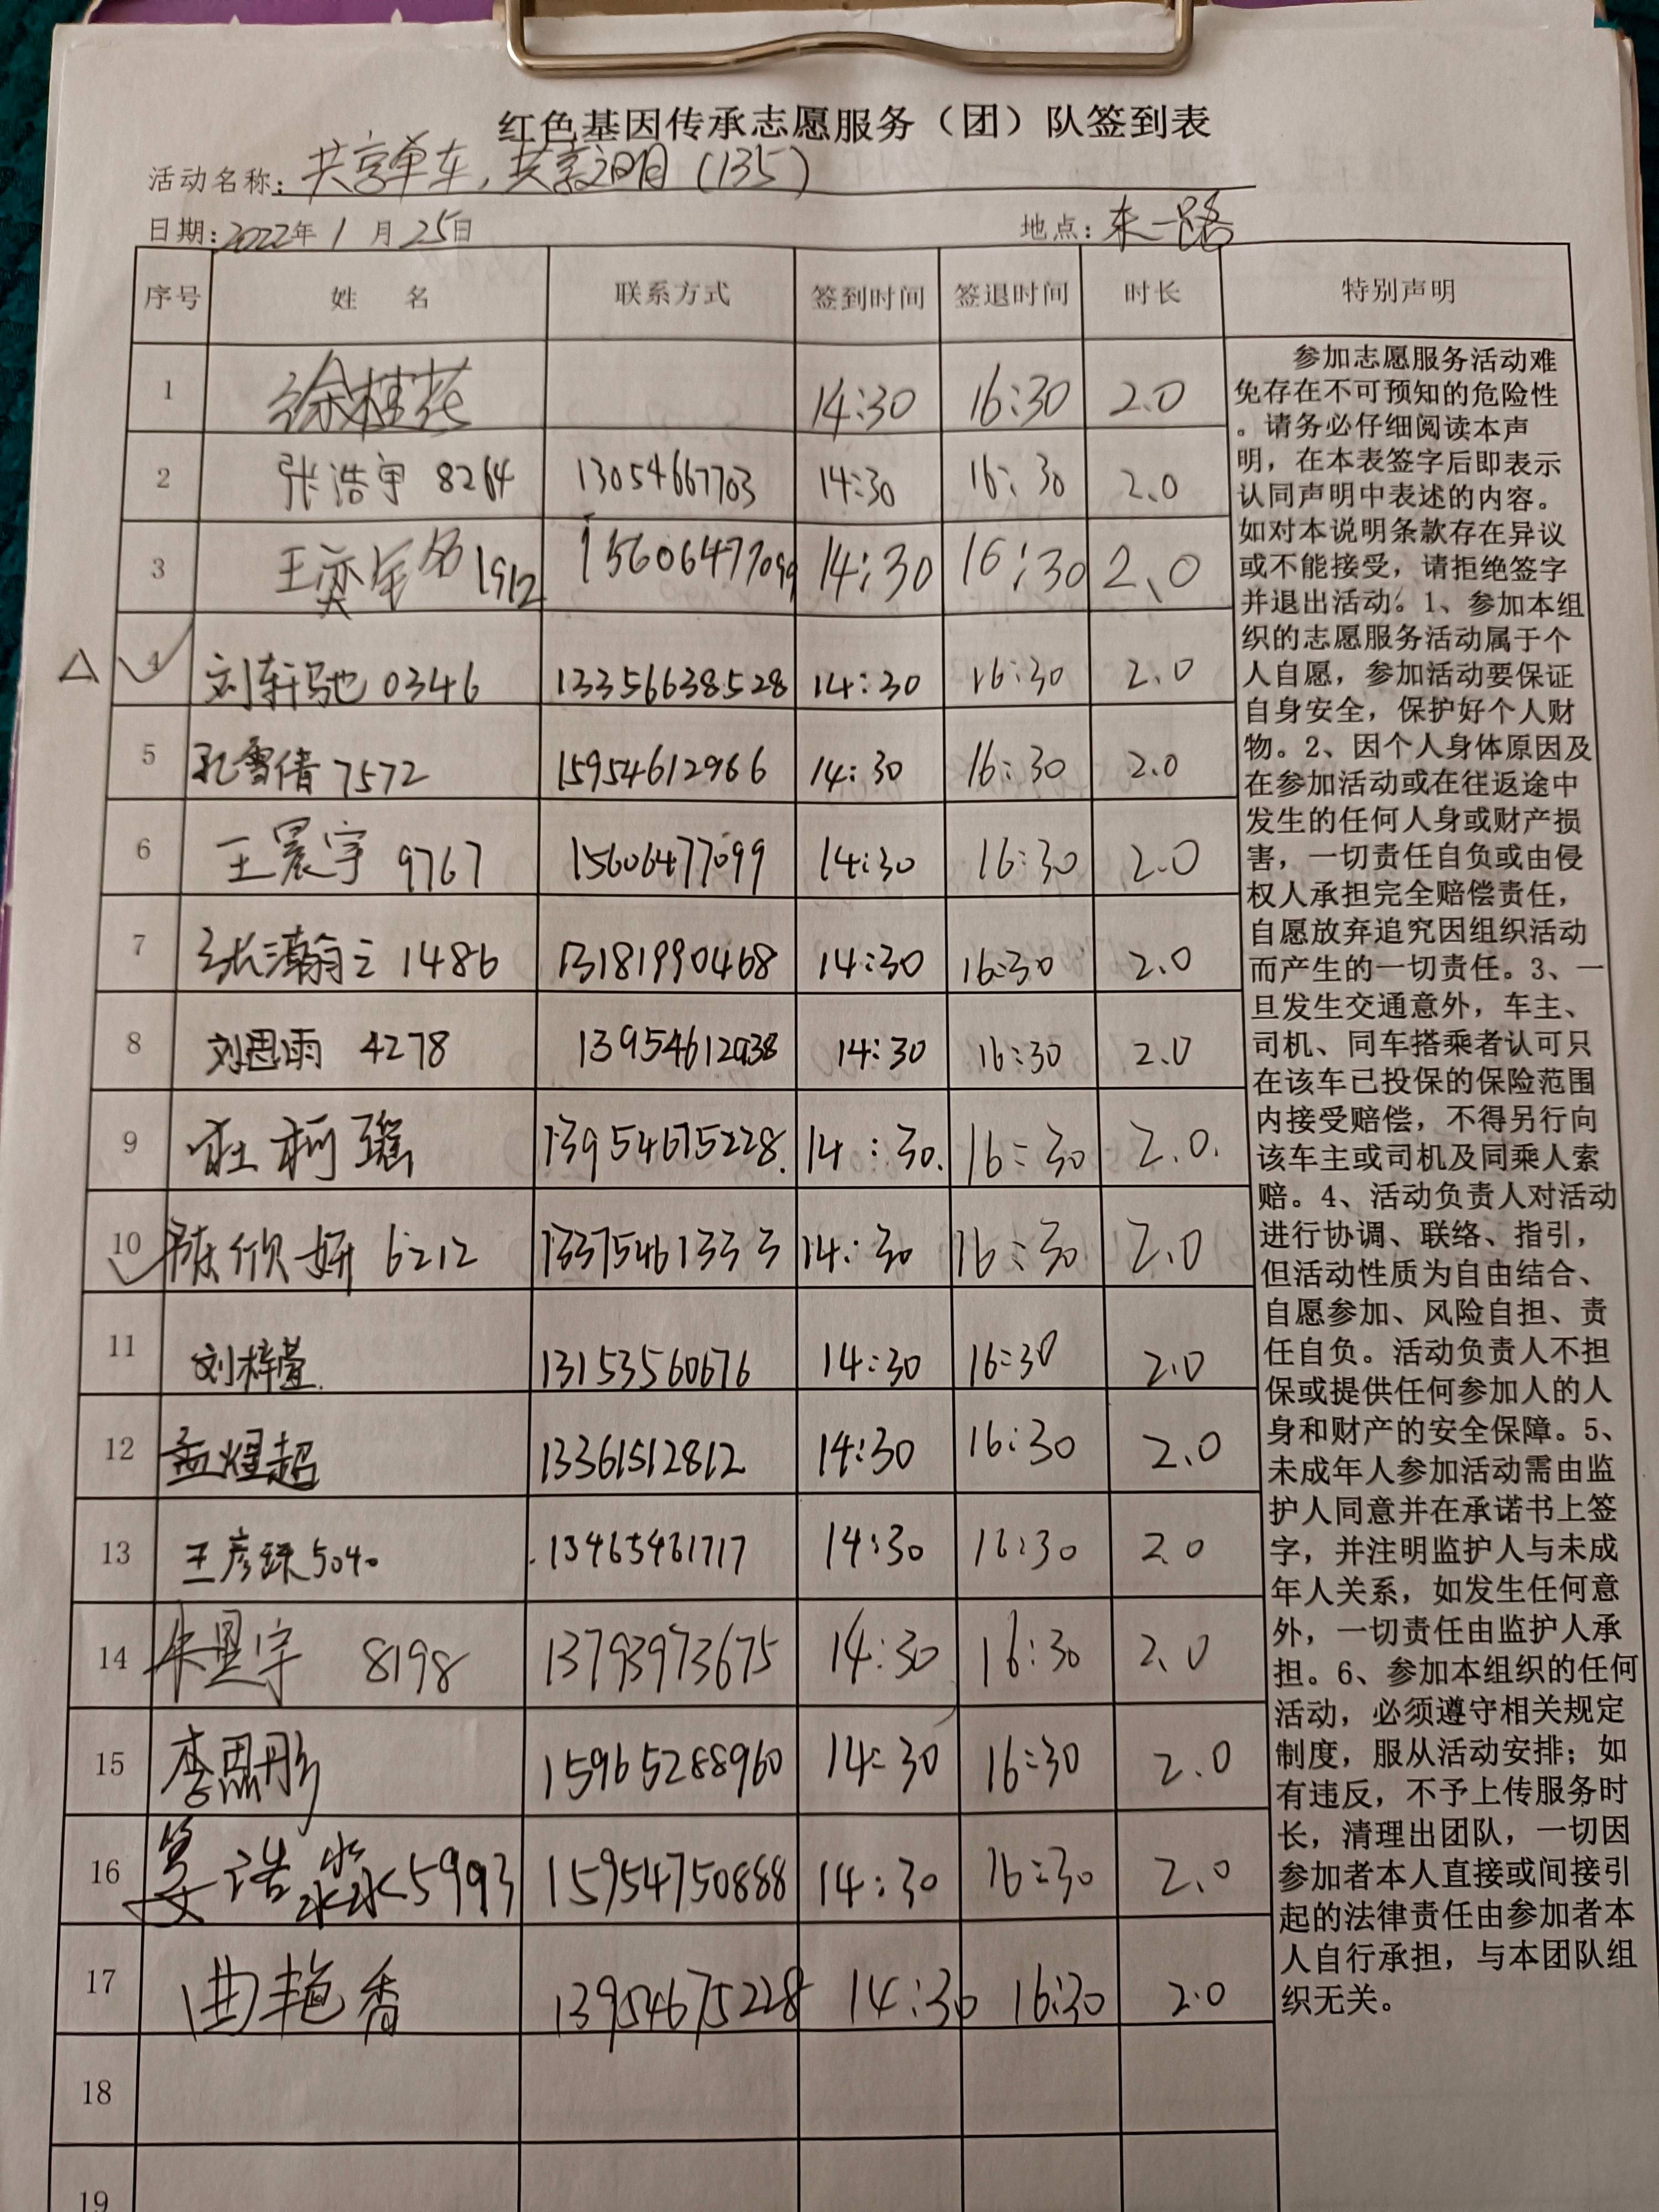 红色基因传承志愿服务（团）队签到表
活动名称：共享单车，共享文明（135）
日期：2022年1月25日 地点：东一路
序号 姓名 联系方式 签到时间 签退时间 时长 特别声明
1 徐桂花 14:30 16:30 2.0
2 张浩宇 8264 13054667703 14:30 16:30 2.0
3 王奕 1912 15606477099 14:30 16:30 2.0
△ 4 刘轩驰 0346 13356638528 14:30 16:30 2.0
5 孔雪倩 7572 15954612966 14:30 16:30 2.0
6 王宸宇 9767 15606477099 14:30 16:30 2.0
7 张瀚之 1486 13181990468 14:30 16:30 2.0
8 刘思雨 4278 13954612938 14:30 16:30 2.0
9 杜柯瑶 13954675228. 14:30. 16:30 2.0.
10 陈欣妍 6212 13375461333 14:30 16:30 2.0
11 刘梓萱. 13153560676 14:30 16:30 2.0
12 孟煜超 13361512812 14:30 16:30 2.0
13 王彦 5040 13465461717 14:30 16:30 2.0
14 朱昱宇 8198 13793973675 14:30 16:30 2.0
15 李思彤 15965288960 14:30 16:30 2.0
16 姜浩淼 5993 15954750888 14:30 16:30 2.0
17 曲艳香 13954675228 14:30 16:30 2.0
18
19
参加志愿服务活动难
免存在不可预知的危险性
。请务必仔细阅读本声
明，在本表签字后即表示
认同声明中表述的内容。
如对本说明条款存在异议
或不能接受，请拒绝签字
并退出活动。1、参加本组
织的志愿服务活动属于个
人自愿，参加活动要保证
自身安全，保护好个人财
物。2、因个人身体原因及
在参加活动或在往返途中
发生的任何人身或财产损
害，一切责任自负或由侵
权人承担完全赔偿责任，
自愿放弃追究因组织活动
而产生的一切责任。3、一
旦发生交通意外，车主、
司机、同车搭乘者认可只
在该车已投保的保险范围
内接受赔偿，不得另行向
该车主或司机及同乘人索
赔。4、活动负责人对活动
进行协调、联络、指引，
但活动性质为自由结合、
自愿参加、风险自担、责
任自负。活动负责人不担
保或提供任何参加人的人
身和财产的安全保障。5、
未成年人参加活动需由监
护人同意并在承诺书上签
字，并注明监护人与未成
年人关系，如发生任何意
外，一切责任由监护人承
担。6、参加本组织的任何
活动，必须遵守相关规定
制度，服从活动安排；如
有违反，不予上传服务时
长，清理出团队，一切因
参加者本人直接或间接引
起的法律责任由参加者本
人自行承担，与本团队组
织无关。